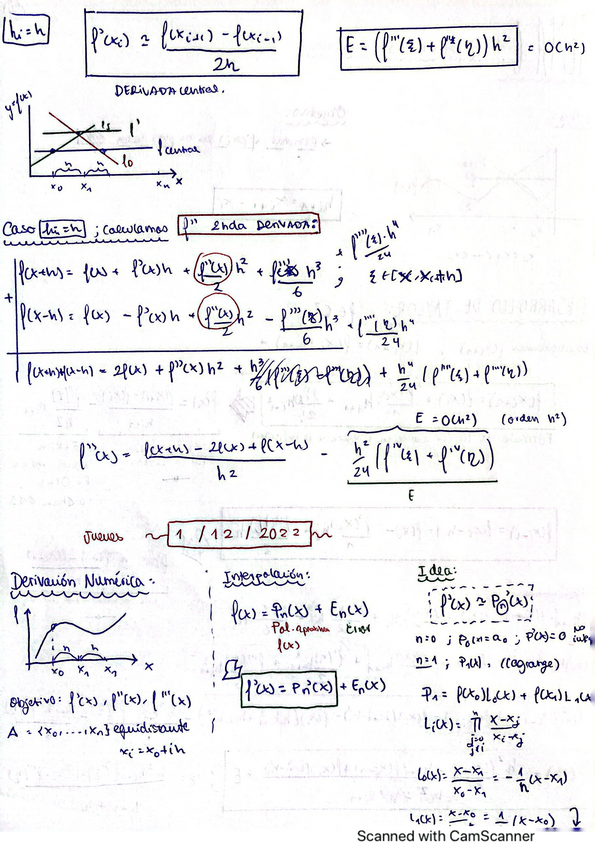 hi=h
f'(xi) ≃ f(xi+1) - f(xi-1) / 2h
E = (f'''(ξ) + f'''(η)) h² = O(h²)
DERIVADA central.
y=f(x)
f'
f central
h h
x0 x1 xn x
Caso hi=h ; calculamos f'' 2nda DERIVADA:
f(x+h) = f(x) + f'(x)h + f''(x)/2 h² + h³/6 + f''''(ξ)·h⁴/24 ;
f(x-h) = f(x) - f'(x)h + f''(x)/2 h² - f'''(ξ)/6 h³ + f''''(η)h⁴/24
f(x+h)+f(x-h) = 2f(x) + f''(x)h² + h³/6 (f'''(ξ) - f'''(η)) + h⁴/24 (f''''(ξ) + f''''(η))
E = O(h²) (orden h²)
f''(x) = f(x+h) - 2f(x) + f(x-h) / h² - h²/24 (f^IV(ξ) + f^IV(η))
E
Jueves 1 /12 /2022
Derivación Numérica:
f
h h
x0 x1 x
Objetivo: f'(x), f''(x), f'''(x)
A = {x0,...,xn} equidistante
xi = x0+ih
Interpolación:
f(x) = Pn(x) + En(x)
Error
f(x)
f'(x) = Pn'(x) + En(x)
Idea:
f'(x) ≃ Pn'(x)
n=0 ; P0(x) = a0 ; P'(x) = 0
n=1 ; P1(x). (Lagrange)
P1 = f(x0)L0(x) + f(x1)L1(x)
Li(x) = n ∏ j=0 j≠i x-xj / xi-xj
L0(x) = x-x1 / x0-x1 = -1/h (x-x1)
L1(x) = x-x0 = 1 (x-x0)
Scanned with CamScanner